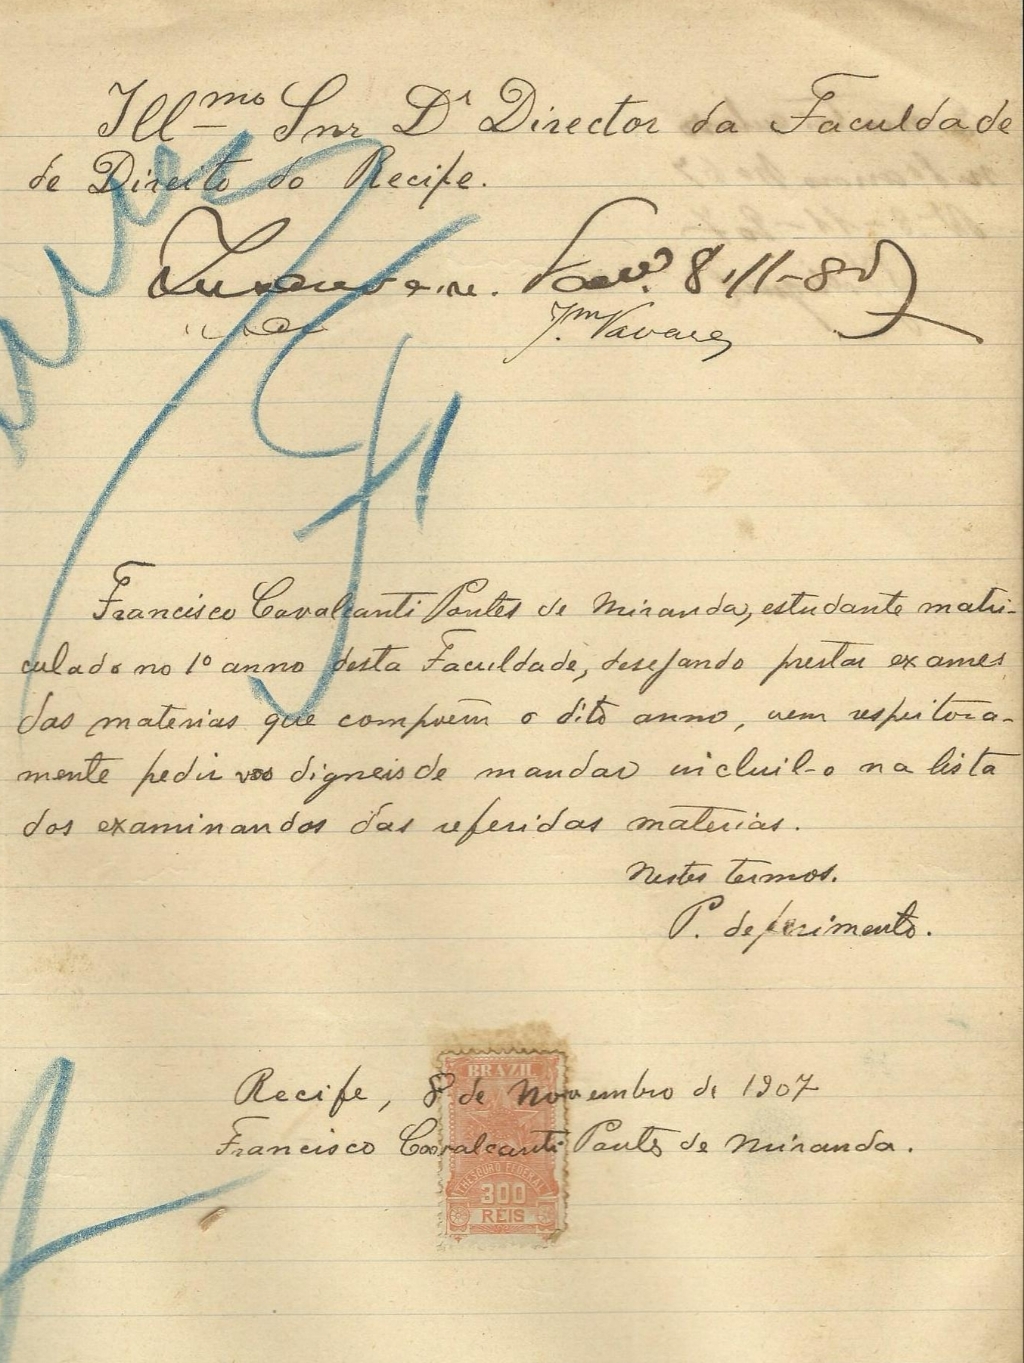 Ill.mo Snr Dr Director da Faculdade
de Direito do Recife.
8-11-
Jm. Tavares
Francisco Cavalcanti Pontes de Miranda, estudante matri-
culado no 1º anno desta Faculdade, desejando prestar exames
das materias que compoêm o dito anno, vem respeitosa-
mente pedir vos digneis de mandar incluil-o na lista
dos examinandos das referidas materias.
Nestes termos.
P. deferimento.
BRAZIL
Recife, 8 de Novembro de 1907
Francisco Cavalcanti Pontes de Miranda.
THESOURO FEDERAL
300
REIS